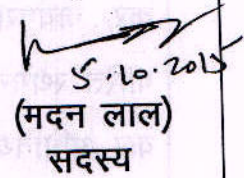 5.10.2015
(मदन लाल)
सदस्य